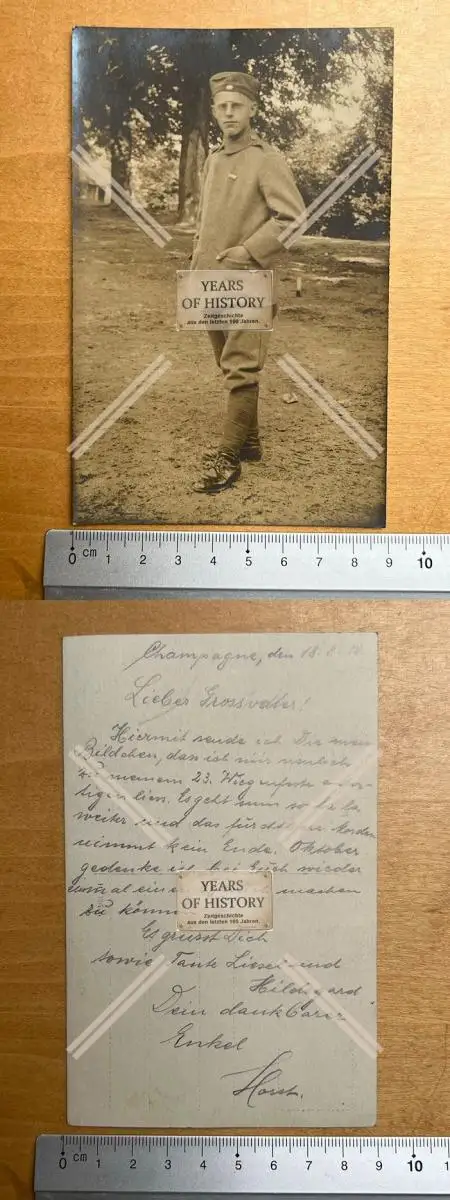 YEARS
OF HISTORY
Zeitgeschichte
aus den letzten 100 Jahren.
0 cm 1 2 3 4 5 6 7 8 9 10
Champagne, den 18. 8.
Lieber Grossvater!
Hiermit sende ich Dir mein
Bildchen, das ich mir neulich
zu meinem 23. Wiegenfeste anfer-
tigen liess. Es geht nun so la la
weiter und das fürchten Morden
nimmt kein Ende. Oktober
gedenke ich bei Euch wieder
einmal ein machen
zu können
YEARS
OF HISTORY
Zeitgeschichte
aus den letzten 100 Jahren.
Es grüsst Dich
sowie Tante Liesel und
Hildegard
Dein dankbarer
Enkel
Horst.
0 cm 1 2 3 4 5 6 7 8 9 10